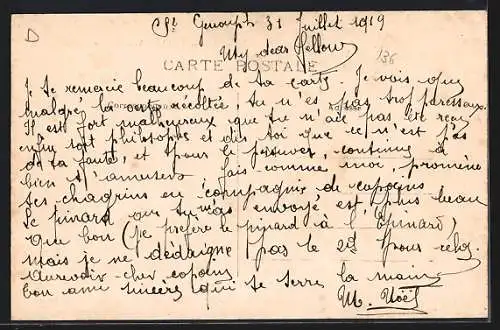 D
St Genouph 31 Juillet 1919
My dear fellow
136
CARTE POSTALE
Je te remercie beaucoup de ta carte. Je vois que
malgré la verte récoltée, tu n'es pas trop paresseux.
Correspondance Adresse
Il est fort malheureux que tu n'aie pas été reçu
enfin soit philosophe et dis toi que ce n'est pas
de ta faute, et pour le prouver continue à
bien t'amuser, fais comme moi, promène
tes chagrins en compagnie de copains
Le pinard que tu m'as envoyé est plus beau
que bon (je préfère le pinard à l'Épinard)
mais je ne dédaigne pas le 2d pour cela.
Aurevoir cher copain
bon ami sincère qui te serre la main
M. Noël